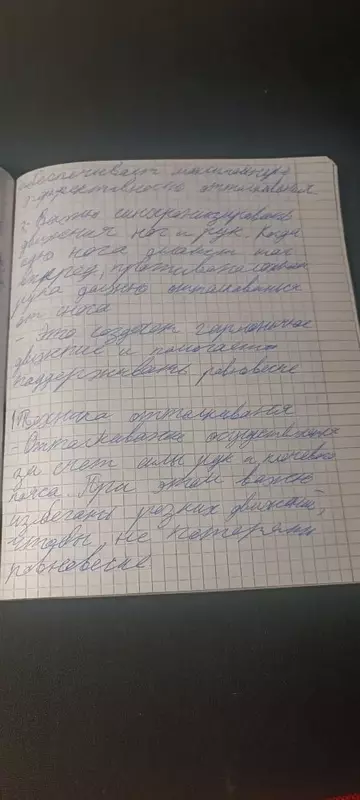 обеспечивает максимальную
эффективность отталкивания
- Важно синхронизировать
движения ног и рук. Когда
одна нога делает шаг
вперед, противоположная
рука должна отталкиваться
от снега
- Это создает гармоничное
движение и помогает
поддерживать равновесие
Техника отталкивания
- Отталкивание осуществляется
за счет силы рук и плечевого
пояса. При этом важно
избегать резких движений,
чтобы не потерять
равновесие